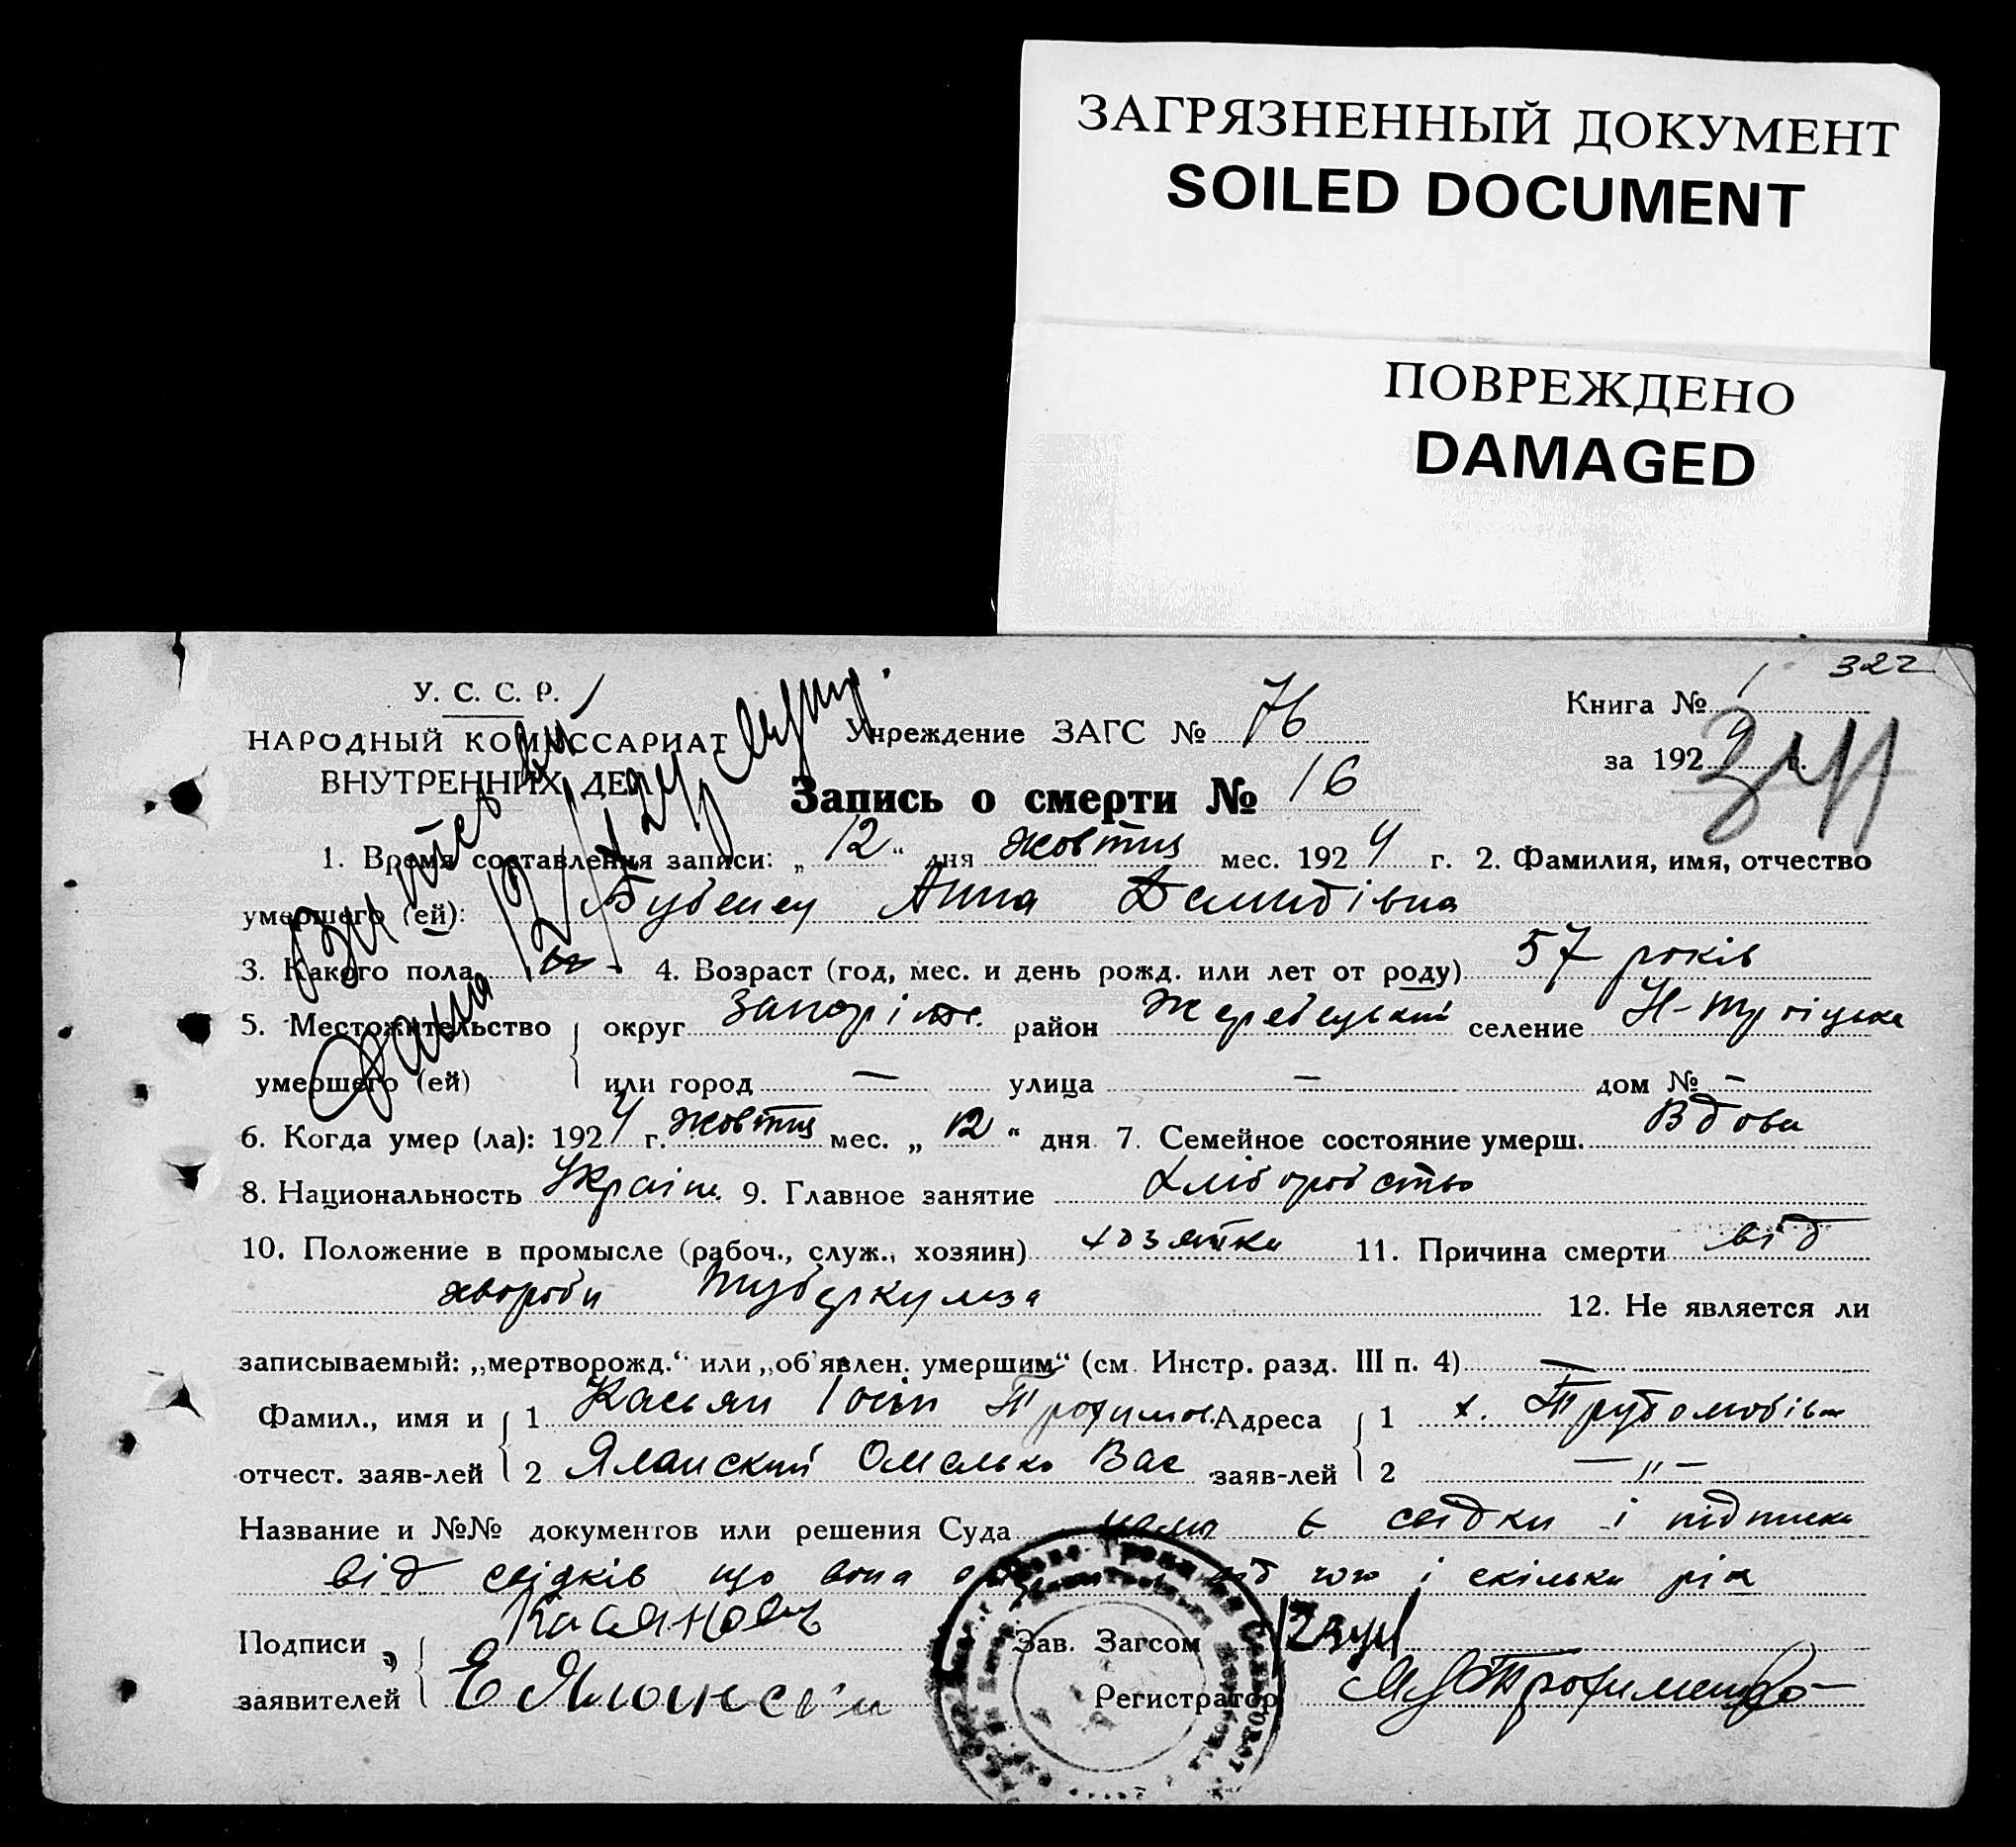 ЗАГРЯЗНЕННЫЙ ДОКУМЕНТ
SOILED DOCUMENT
ПОВРЕЖДЕНО
DAMAGED
322
У. С. С. Р.
НАРОДНЫЙ КОМИССАРИАТ
ВНУТРЕННИХ ДЕЛ
Учреждение ЗАГС № 76
Книга № 1
за 1924 г.
Запись о смерти № 16
1. Время составления записи: „12“ дня жовтня мес. 1924 г. 2. Фамилия, имя, отчество
умершего (ей): Бубенец Анна Демидівна
3. Какого пола 4. Возраст (год, мес. и день рожд. или лет от роду) 57 років
5. Местожительство округ Запоріж. район Жеребецький селение
умершего (ей) или город — улица — дом № —
6. Когда умер (ла): 1924 г. жовтня мес. „12“ дня 7. Семейное состояние умерш. Вдова
8. Национальность Україн. 9. Главное занятие хліборобство
10. Положение в промысле (рабоч., служ., хозяин) хозяйка 11. Причина смерти від
хвороби туберкульоза 12. Не является ли
записываемый: „мертворожд.“ или „об'явлен. умершим“ (см. Инстр. разд. III п. 4) —
Фамил., имя и 1 Касьян Іосіп Трофимов. Адреса 1 х. Трудолюбівка
отчест. заяв-лей 2 Яланский Омелько Вас заяв-лей 2 — „ —
Название и №№ документов или решения Суда є свідки і підписка
від свідків що вона і скільки рік
Подписи Зав. Загсом
заявителей Регистратор Трофименко